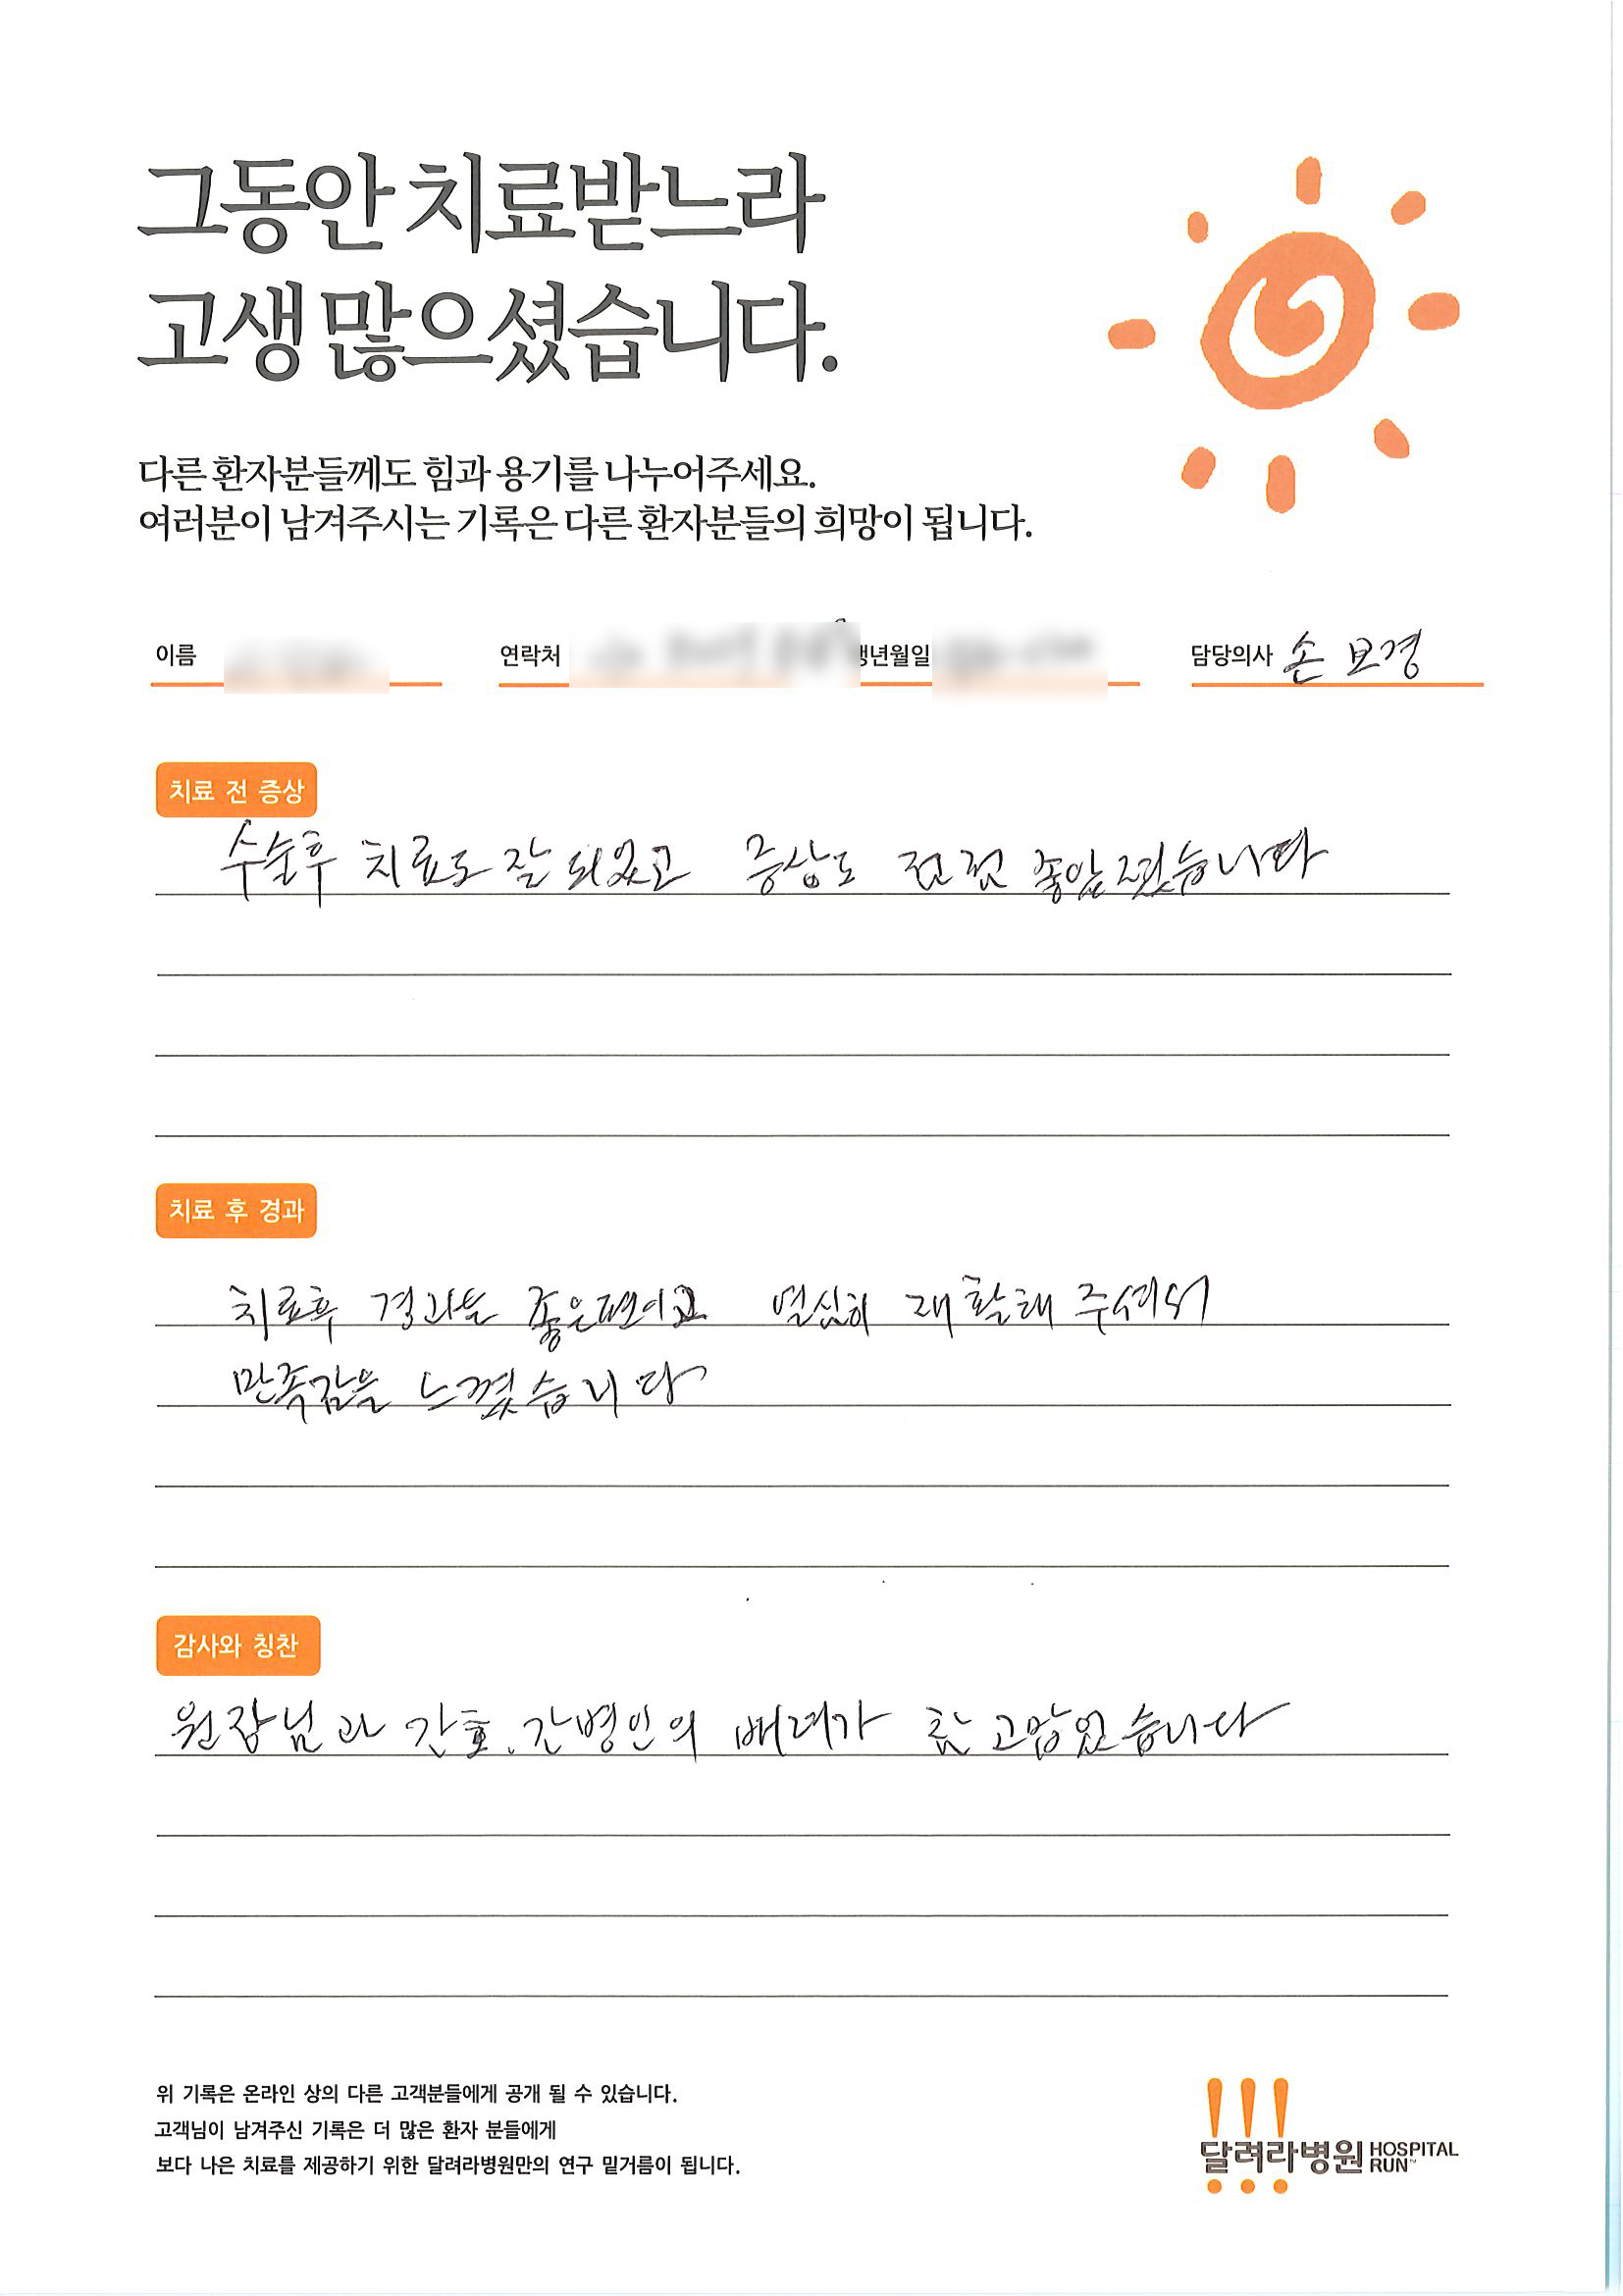 그동안 치료받느라
고생 많으셨습니다.
다른 환자분들께도 힘과 용기를 나누어주세요.
여러분이 남겨주시는 기록은 다른 환자분들의 희망이 됩니다.
이름 연락처 생년월일 담당의사 손보경
치료 전 증상
수술후 치료도 잘 되었고 증상도 점점 좋았졌습니다
치료 후 경과
치료후 경과는 좋은편이고 열심히 재활해 주셔서
만족감을 느꼈습니다
감사와 칭찬
원장님과 간호.간병인의 배려가 참 고맙었습니다
위 기록은 온라인 상의 다른 고객분들에게 공개 될 수 있습니다.
고객님이 남겨주신 기록은 더 많은 환자 분들에게
보다 나은 치료를 제공하기 위한 달려라병원만의 연구 밑거름이 됩니다.
달려라병원 HOSPITAL RUN